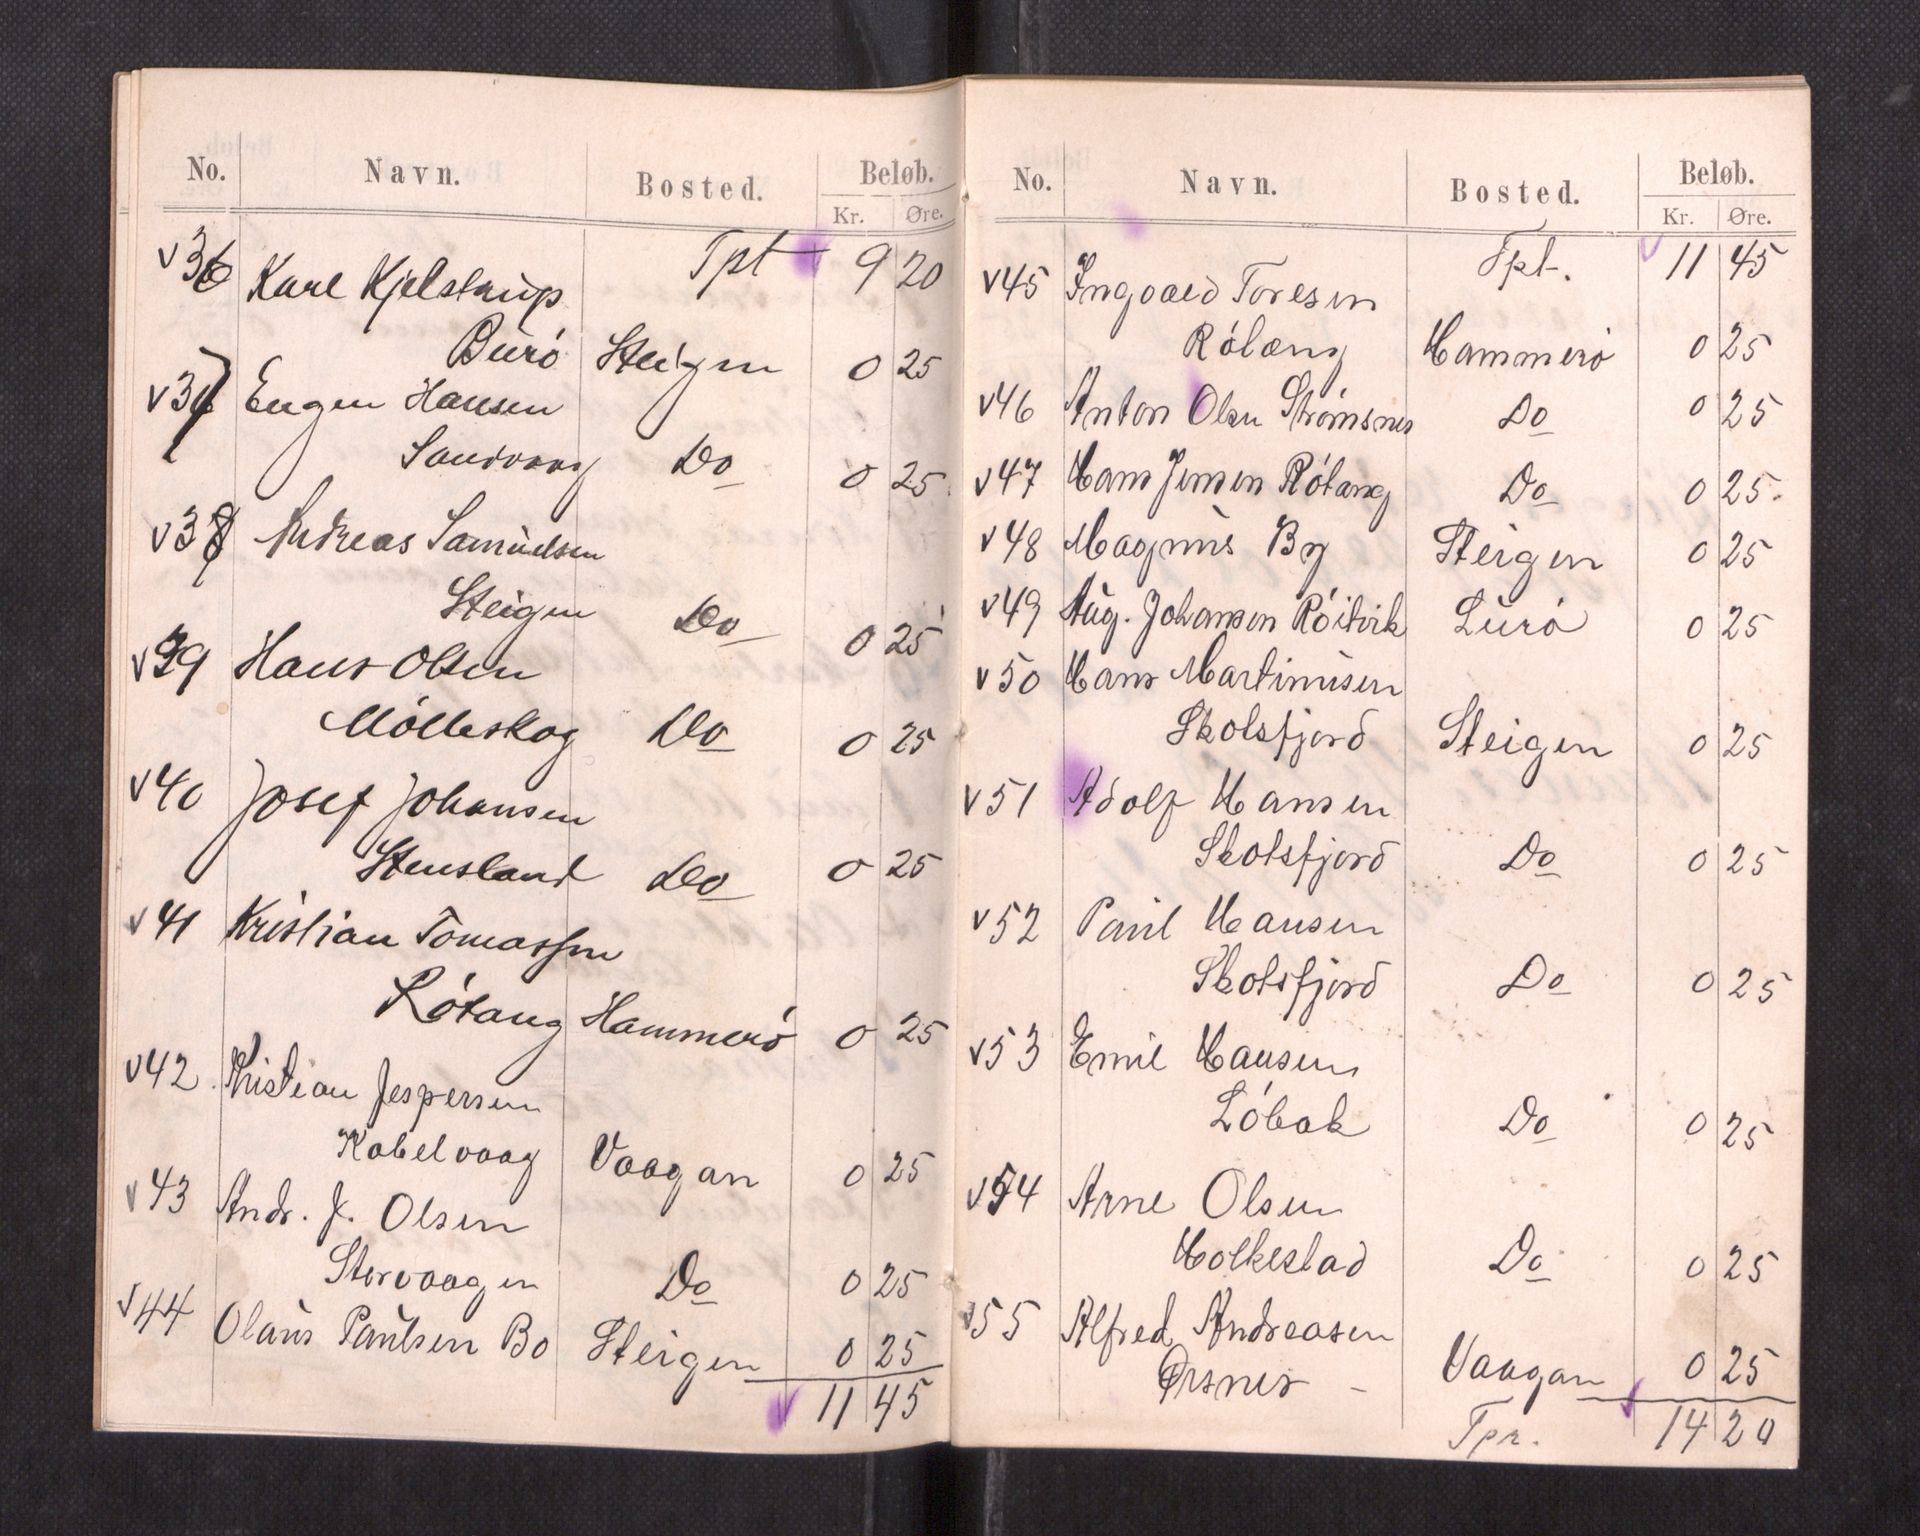 No. Navn. Bosted. Beløb.
Kr. Øre.
Tpt 9 20
v36 Karl Kjelstrup
Burö Steigen 0 25
v37 Eugen Hansen
Sandvaag Do 0 25
v38 Andreas Samuelsen
Steigen Do 0 25
v39 Hans Olsen
Mölleskog Do 0 25
v40 Josef Johansen
Stensland Do 0 25
v41 Kristian Tomassen
Rötang Hammerö 0 25
v42 Kristian Jespersen
Kabelvaag Vaagan 0 25
v43 Andr. J. Olsen
Storvaagen Do 0 25
v44 Olaus Paulsen Bo Steigen 0 25
11 45
No. Navn. Bosted. Beløb.
Kr. Øre.
Tpt. 11 45
v45 Ingvald Toresen
Rötang Hammerö 0 25
v46 Anton Olsen Strömsnes Do 0 25
v47 Hans Jensen Rötang Do 0 25
v48 Magnus By Steigen 0 25
v49 Aug. Johansen Röitvik Lurö 0 25
v50 Hans Martinusen
Skotsfjord Steigen 0 25
v51 Adolf Hansen
Skotsfjord Do 0 25
v52 Paul Hansen
Skotsfjord Do 0 25
v53 Emil Hansen
Löbak Do 0 25
v54 Arne Olsen
Holkestad Do 0 25
v55 Alfred Andreasen
Ørsnes - Vaagan 0 25
Tpr. 14 20